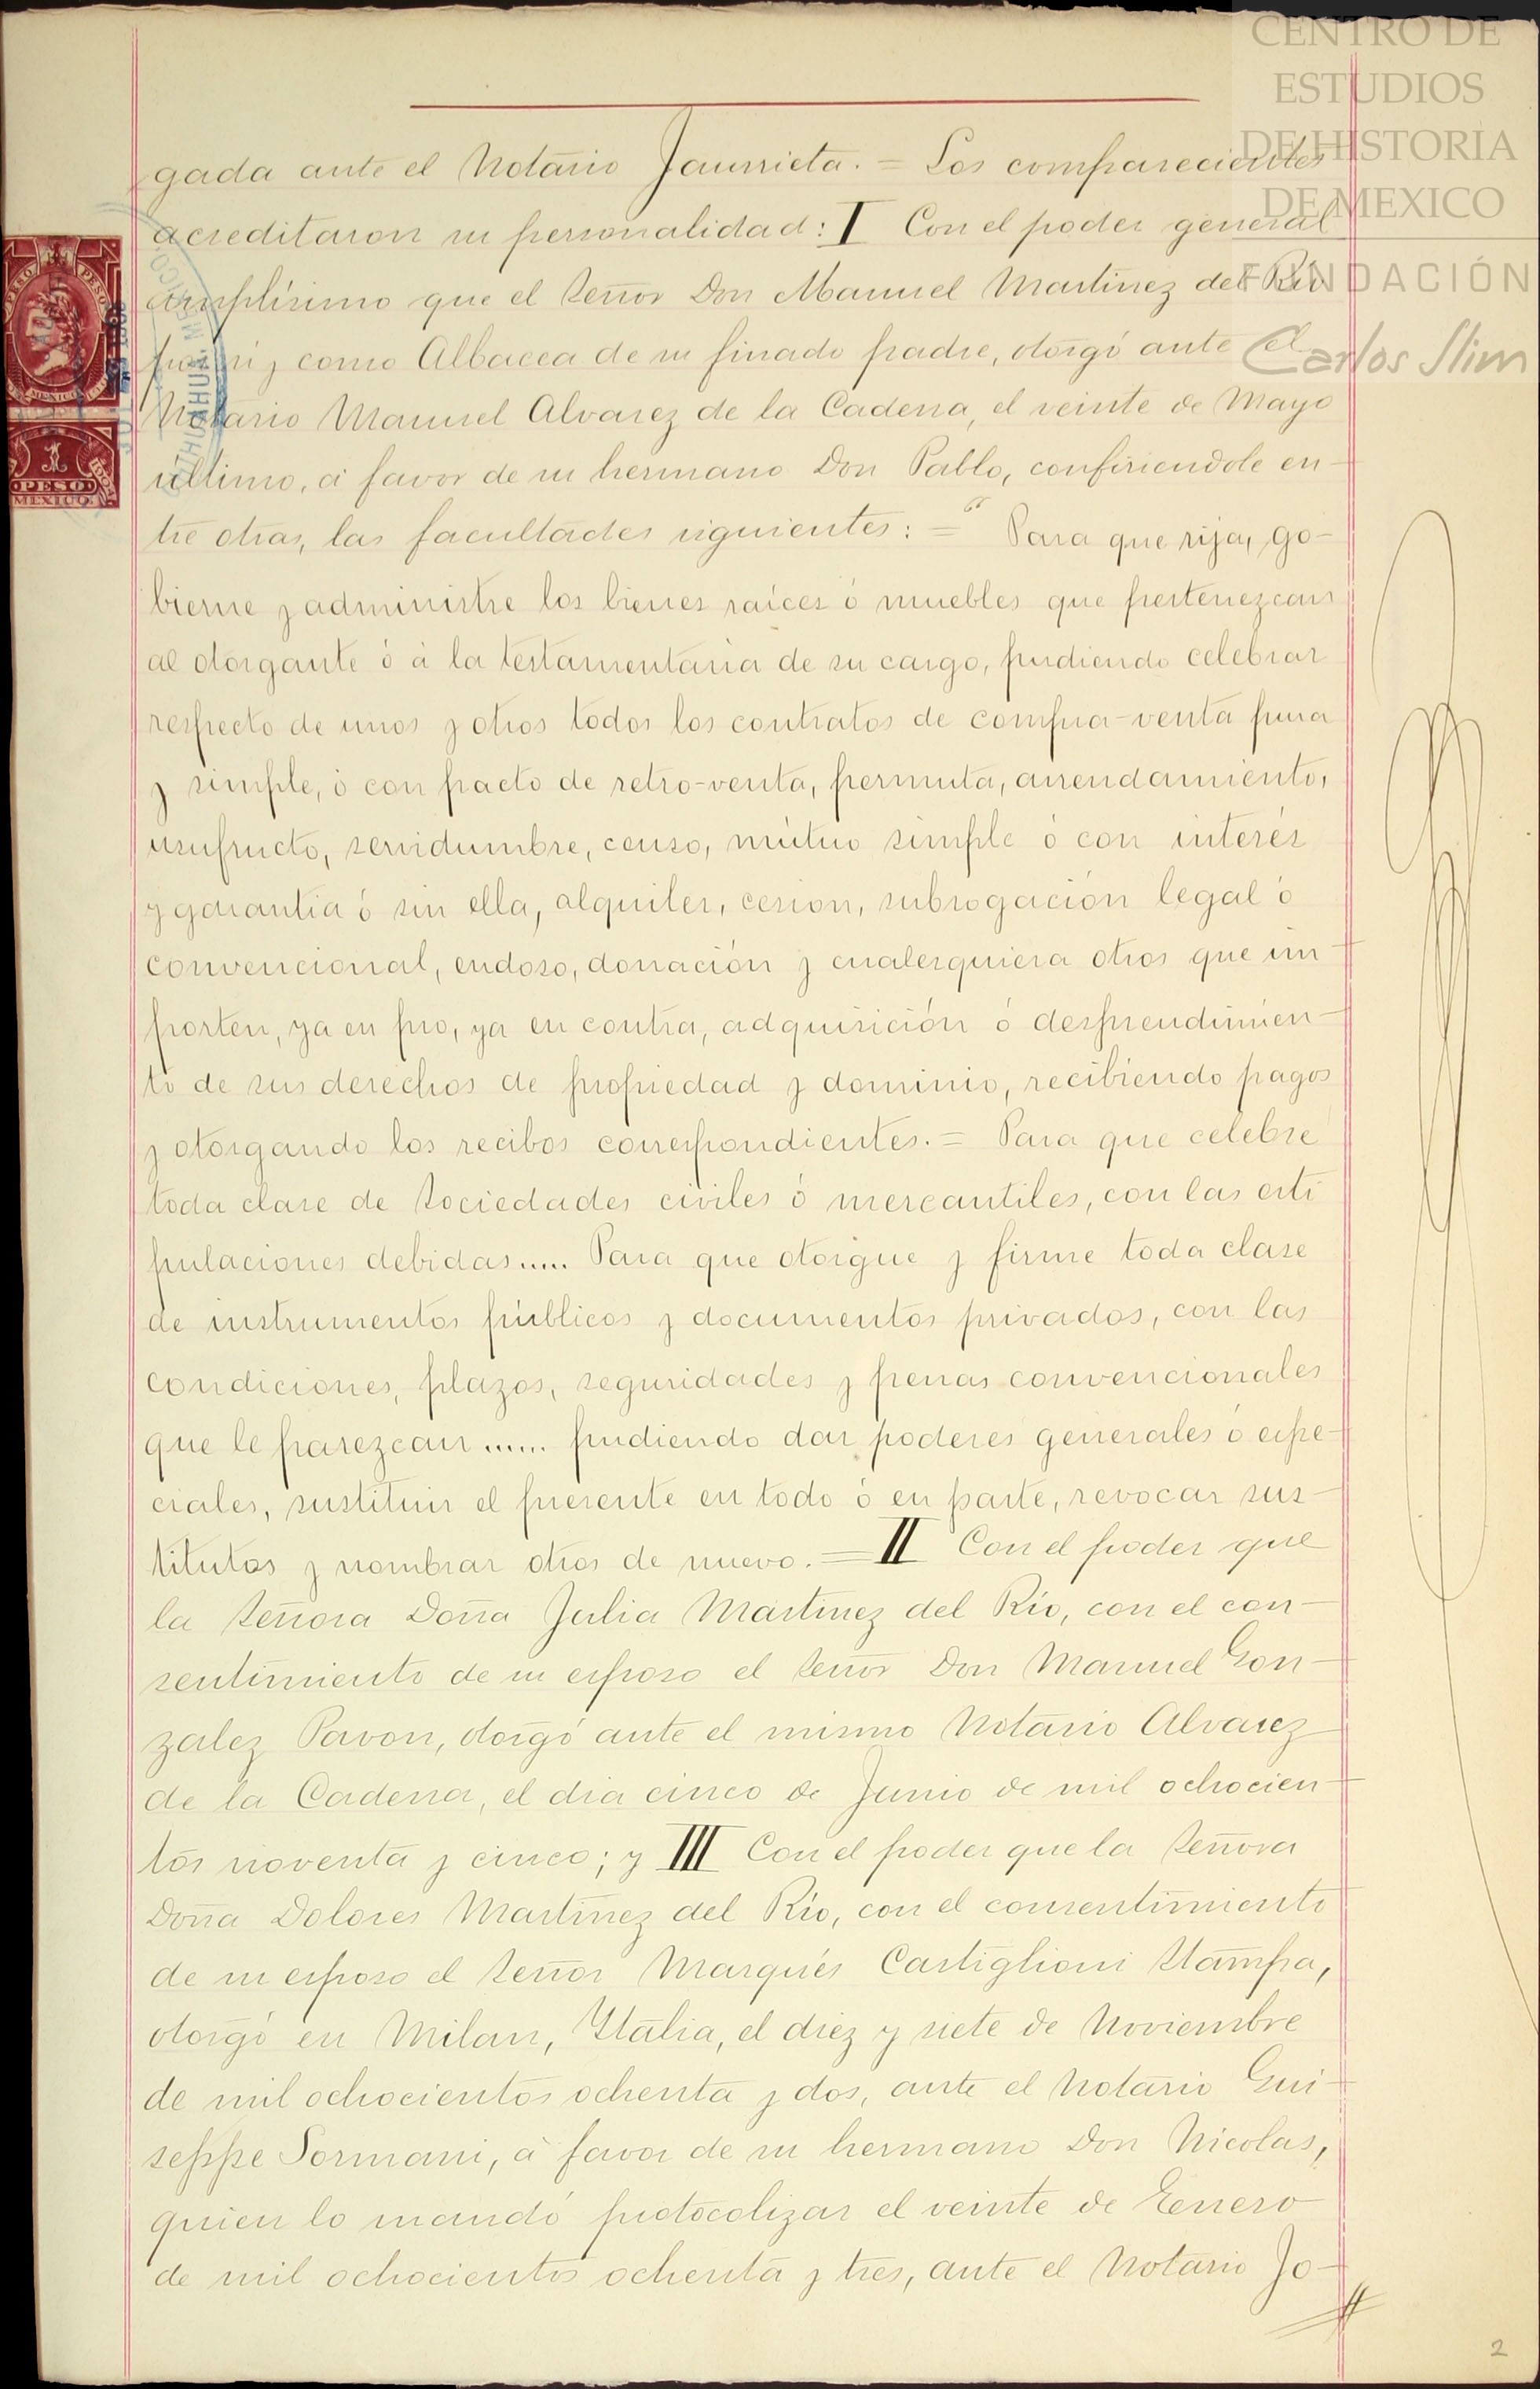 CENTRO DE
ESTUDIOS
DE HISTORIA
DE MEXICO
FUNDACIÓN
Carlos Slim
gada ante el Notario Jaurrieta. = Los comparecientes
acreditaron su personalidad: I Con el poder general
amplísimo que el Señor Don Manuel Martinez del Río
por sí y como Albacea de su finado padre, otorgó ante el
Notario Manuel Alvarez de la Cadena, el veinte de Mayo
último, á favor de su hermano Don Pablo, confiriendole en-
tre otras, las facultades siguientes: = " Para que rija, go-
bierne y administre los bienes raíces ó muebles que pertenezcan
al otorgante ó á la testamentaria de su cargo, pudiendo celebrar
respecto de unos y otros todos los contratos de compra-venta pura
y simple, ó con pacto de retro-venta, permuta, arrendamiento,
usufructo, servidumbre, censo, mútuo simple ó con interés
y garantia ó sin ella, alquiler, cesion, subrogación legal ó
convencional, endoso, donación y cualesquiera otros que im-
porten, ya en pro, ya en contra, adquisición ó desprendimien-
to de sus derechos de propiedad y dominio, recibiendo pagos
y otorgando los recibos correspondientes. = Para que celebre
toda clase de Sociedades civiles ó mercantiles, con las esti
pulaciones debidas..... Para que otorgue y firme toda clase
de instrumentos públicos y documentos privados, con las
condiciones, plazos, seguridades y penas convencionales
que le parezcan...... pudiendo dar poderes generales ó espe-
ciales, sustituir el presente en todo ó en parte, revocar sus-
titutos y nombrar otros de nuevo. = II Con el poder que
la Señora Doña Julia Martinez del Río, con el con-
sentimiento de su esposo el Señor Don Manuel Gon-
zalez Pavon, otorgó ante el mismo Notario Alvarez
de la Cadena, el dia cinco de Junio de mil ochocien-
tos noventa y cinco; y III Con el poder que la Señora
Doña Dolores Martinez del Río, con el consentimiento
de su esposo el Señor Marqués Castiglioni Stampa,
otorgó en Milan, Ytalia, el diez y siete de Noviembre
de mil ochocientos ochenta y dos, ante el Notario Gui-
seppe Sormani, á favor de su hermano Don Nicolas,
quien lo mandó protocolizar el veinte de Enero
de mil ochocientos ochenta y tres, ante el Notario Jo-
PESO
1
PESO
MEXICO
CHIHUAHUA
2